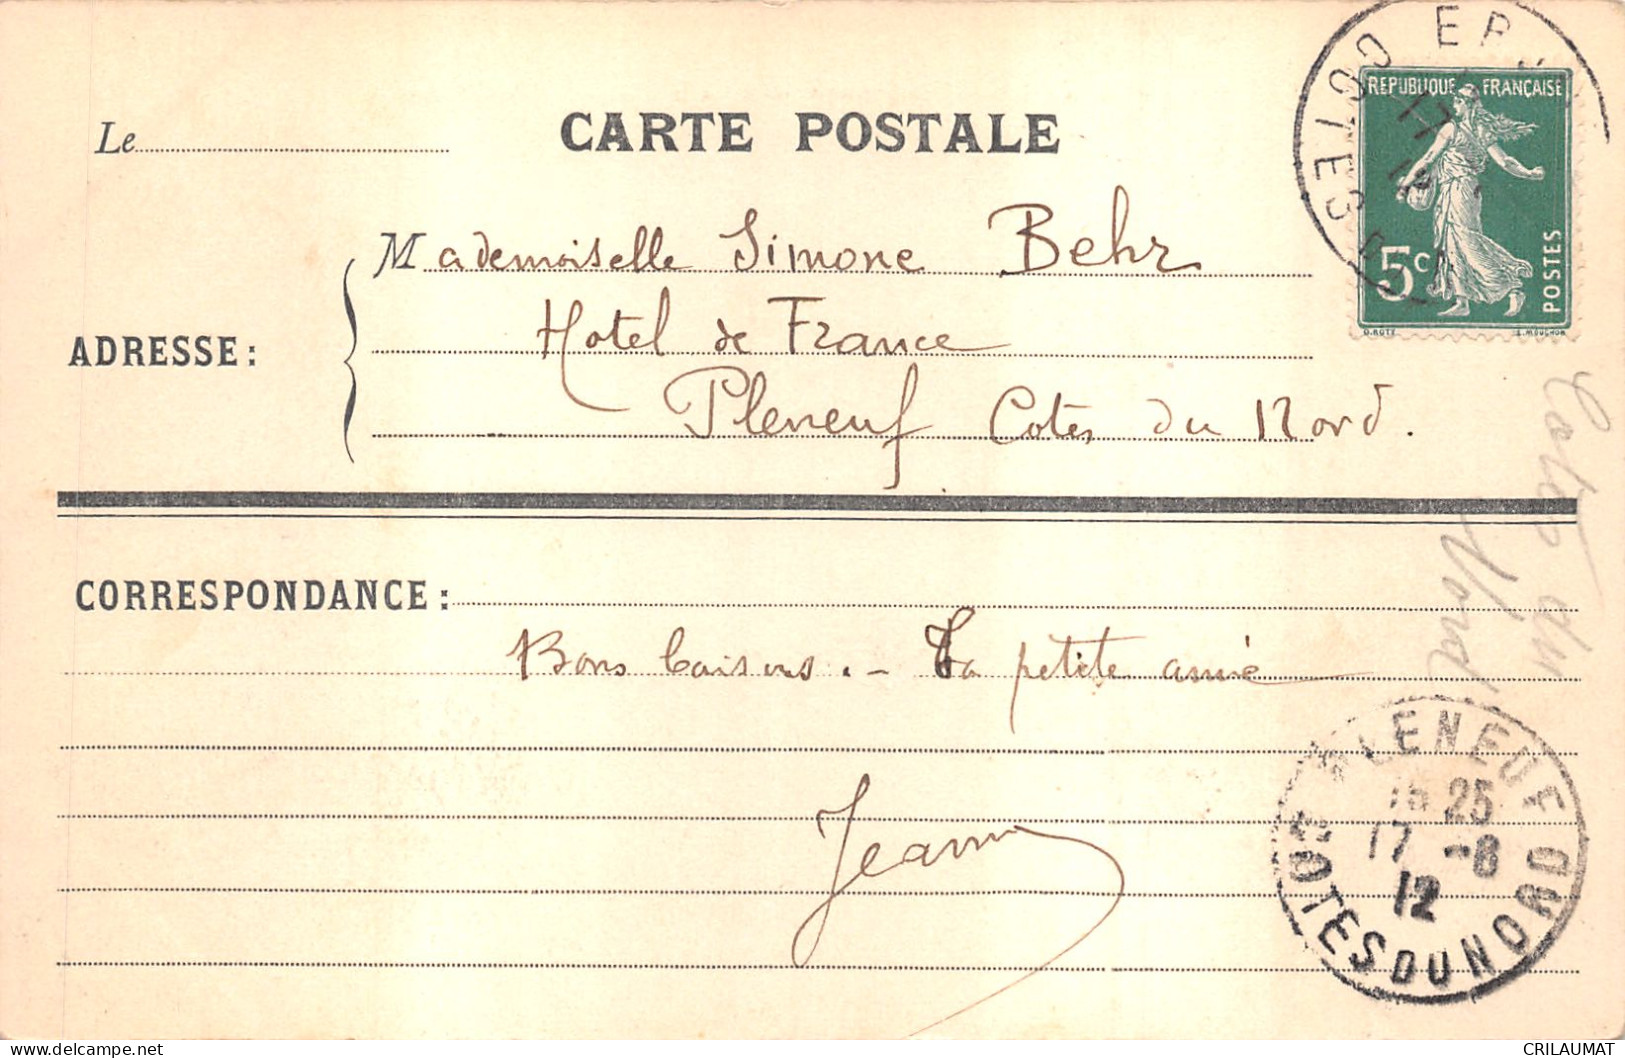 CARTE POSTALE
Le
REPUBLIQUE FRANÇAISE
5c
POSTES
O. ROTY
E. MOUCHON
COTES D
17
12
ADRESSE :
Mademoiselle Simone Behr
Hotel de France
Pleneuf Cotes du Nord.
Cotes du
Nord
CORRESPONDANCE :
Bons baisers. - Ta petite amie
Jeanne
PLENEUF
25
17 -8
12
COTES DU NORD
CRILAUMAT